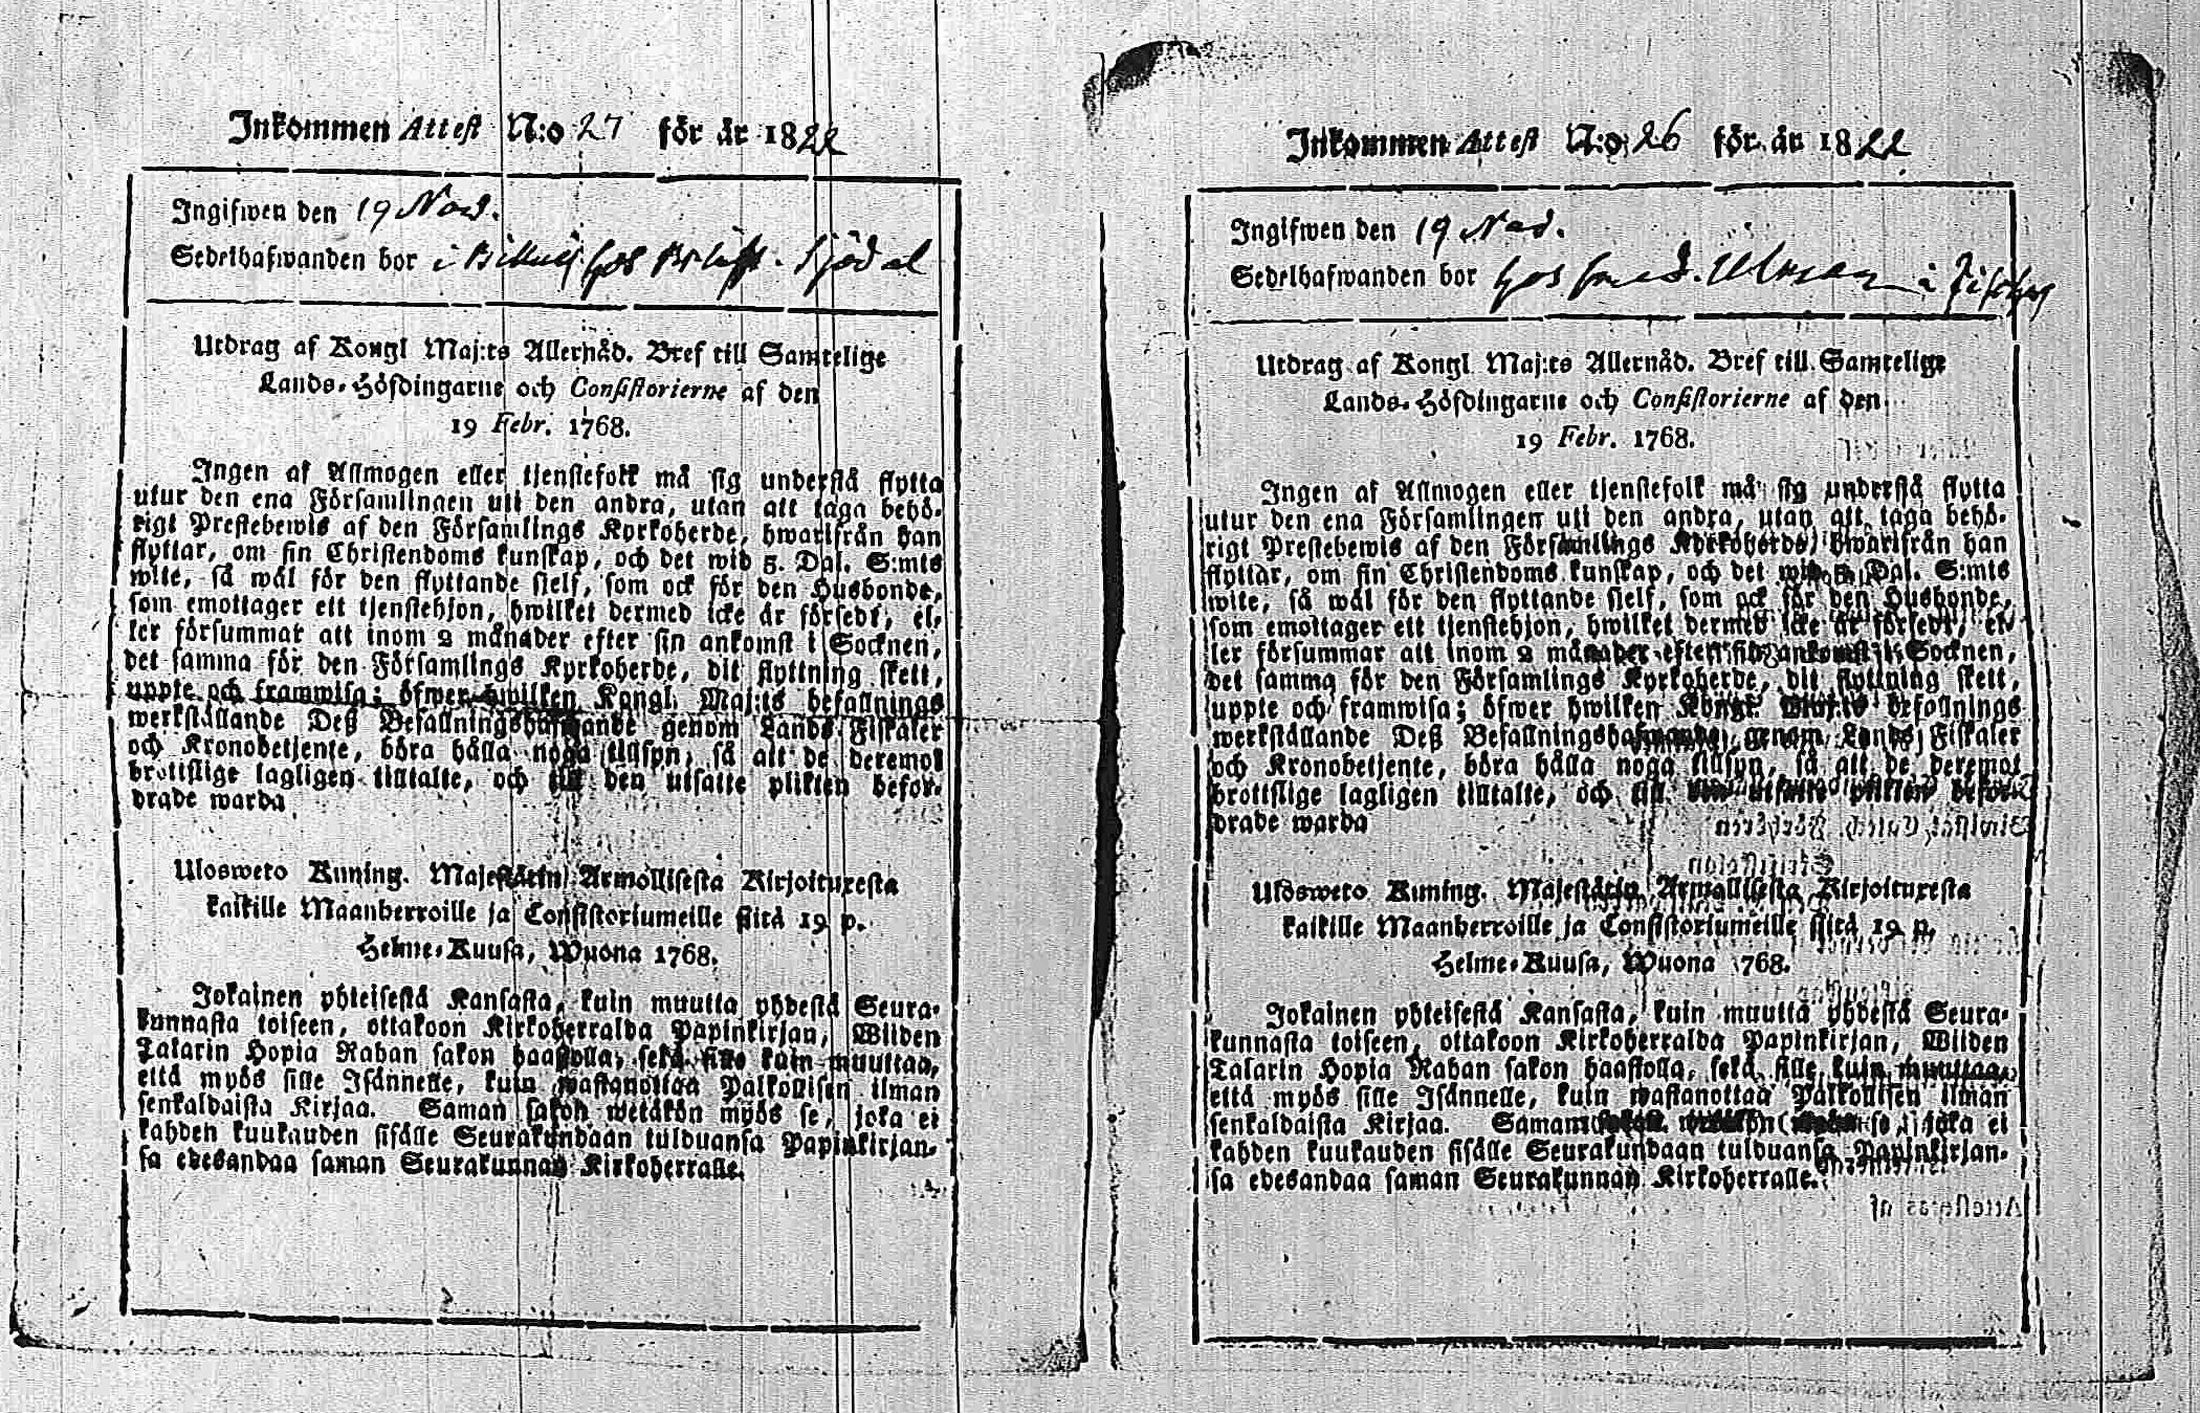 Inkommen Attest N:o 27 för år 1822
Ingifwen den 19 Nov.
Sedelhafwanden bor i hos Sjödal
Utdrag af Kongl Maj:ts Allernåd. Bref till Samtelige
Lands-Höfdingarne och Consistorierne af den
19 Febr. 1768.
Ingen af Allmogen eller tjenstefolk må sig understå flytta
utur den ena Församlingen uti den andra, utan att taga behö-
rigt Prestebewis af den Församlings Kyrkoherde, hwarifrån han
flyttar, om sin Christendoms kunskap, och det wid 5. Dal. S:mts
wite, så wäl för den flyttande sielf, som ock för den Husbonde,
som emottager ett tjenstehjon, hwilket dermed icke är försedt, el-
ler försummar att inom 2 månader efter sin ankomst i Socknen,
det samma för den Församlings Kyrkoherde, dit flyttning skett,
uppte och framwisa; öfwer hwilken Kongl. Maj:ts befallnings
werkställande Deß Befallningshafwande genom Lands Fiskaler
och Kronobetjente, böra hålla noga tillsyn, så att de deremot
brottslige lagligen tilltalte, och till den utsatte plikten befor-
drade warda
Ulosweto Kuning. Majestätin Armollisesta Kirjoituxesta
kaikille Maanherroille ja Consistoriumeille siitä 19 p.
Helme-Kuusa, Wuona 1768.
Jokainen yhteisestä Kansasta, kuin muutta yhdestä Seura-
kunnasta toiseen, ottakoon Kirkoherralda Papinkirjan, Wiiden
Talarin Hopia Rahan sakon haastolla, sekä sille kuin muuttaa,
että myös sille Isännelle, kuin wastanottaa Palkollisen ilman
senkaldaista Kirjaa. Saman sakon wetäkön myös se, joka ei
kahden kuukauden sisälle Seurakundaan tulduansa Papinkirjan-
sa edesandaa saman Seurakunnan Kirkoherralle.
Inkommen Attest N:o 26 för år 1822
Ingifwen den 19 Nov.
Sedelhafwanden bor hos i
Utdrag af Kongl Maj:ts Allernåd. Bref till Samtelige
Lands-Höfdingarne och Consistorierne af den
19 Febr. 1768.
Ingen af Allmogen eller tjenstefolk må sig understå flytta
utur den ena Församlingen uti den andra, utan att taga behö-
rigt Prestebewis af den Församlings Kyrkoherde, hwarifrån han
flyttar, om sin Christendoms kunskap, och det wid 5. Dal. S:mts
wite, så wäl för den flyttande sielf, som ock för den Husbonde,
som emottager ett tjenstehjon, hwilket dermed icke är försedt, el-
ler försummar att inom 2 månader efter sin ankomst i Socknen,
det samma för den Församlings Kyrkoherde, dit flyttning skett,
uppte och framwisa; öfwer hwilken Kongl. Maj:ts befallnings
werkställande Deß Befallningshafwande genom Lands Fiskaler
och Kronobetjente, böra hålla noga tillsyn, så att de deremot
brottslige lagligen tilltalte, och till den utsatte plikten befor-
drade warda
Ulosweto Kuning. Majestätin Armollisesta Kirjoituxesta
kaikille Maanherroille ja Consistoriumeille siitä 19 p.
Helme-Kuusa, Wuona 1768.
Jokainen yhteisestä Kansasta, kuin muutta yhdestä Seura-
kunnasta toiseen, ottakoon Kirkoherralda Papinkirjan, Wiiden
Talarin Hopia Rahan sakon haastolla, sekä sille kuin muuttaa,
että myös sille Isännelle, kuin wastanottaa Palkollisen ilman
senkaldaista Kirjaa. Saman sakon wetäkön myös se, joka ei
kahden kuukauden sisälle Seurakundaan tulduansa Papinkirjan-
sa edesandaa saman Seurakunnan Kirkoherralle.